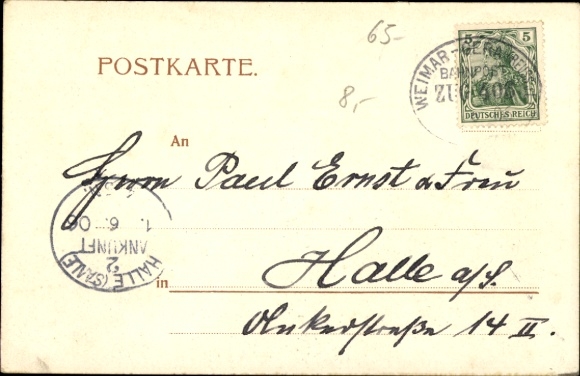 65-
8,-
POSTKARTE.
WEIMAR-GERA
BAHNPOST
ZUG
5 5
DEUTSCHES REICH
An
Herrn Paul Ernst & Frau
1. 6. 06
ANKUNFT
2
HALLE (SAALE)
in Halle a/S.
straße 14 II.